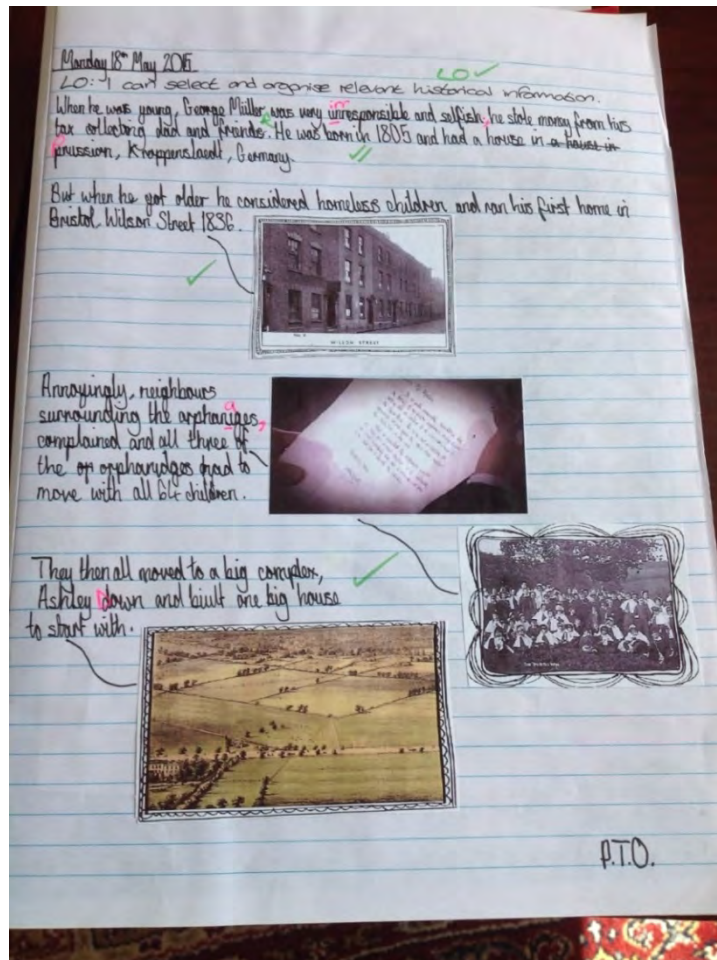 Monday 18th May 2015
LO ✓
LO: I can select and organise relevant historical information.
When he was young, George Müller was very unresponsible and selfish; he stole money from his
tax collecting dad and friends. He was born in 1805 and had a house in a house in
prussion, Kroppenslaedt, Germany.
But when he got older he considered homeless children and ran his first home in
Bristol Wilson Street 1836.
WILSON STREET
Annoyingly, neighbours
surrounding the orphaniges,
complained and all three of
the or orphanidges had to
move with all 64 children.
They then all moved to a big complex,
Ashley Down and built one big house
to start with.
P.T.O.